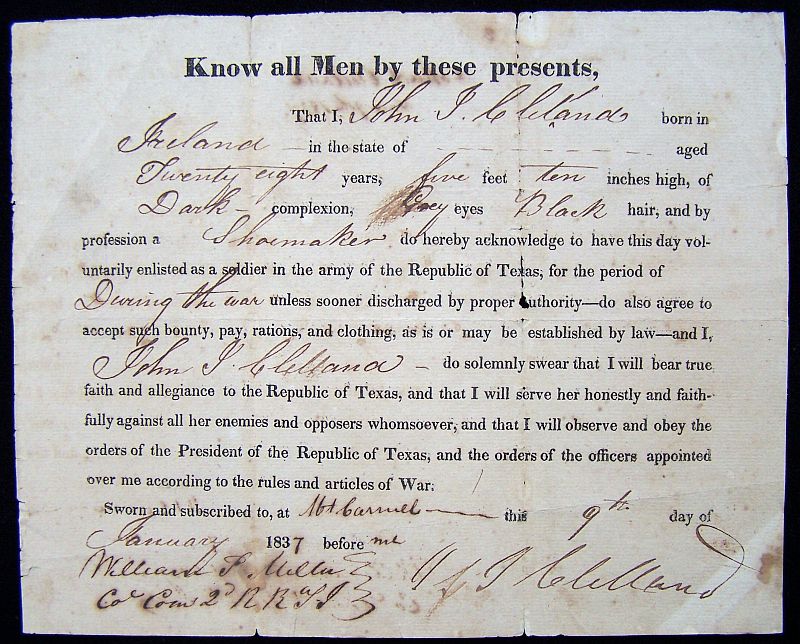 Know all Men by these presents,
That I, John J. Clelland born in
Ireland — in the state of — — — — — — aged
Twenty eight years, five feet ten inches high, of
Dark — complexion, Grey eyes Black hair, and by
profession a Shoemaker do hereby acknowledge to have this day vol-
untarily enlisted as a soldier in the army of the Republic of Texas, for the period of
During the war unless sooner discharged by proper authority—do also agree to
accept such bounty, pay, rations, and clothing, as is or may be established by law—and I,
John J. Clelland — do solemnly swear that I will bear true
faith and allegiance to the Republic of Texas, and that I will serve her honestly and faith-
fully against all her enemies and opposers whomsoever, and that I will observe and obey the
orders of the President of the Republic of Texas, and the orders of the officers appointed
over me according to the rules and articles of War.
Sworn and subscribed to, at Mt Carmel — this 9th day of
January 1837 before me
William F. Miller
J Clelland
2d